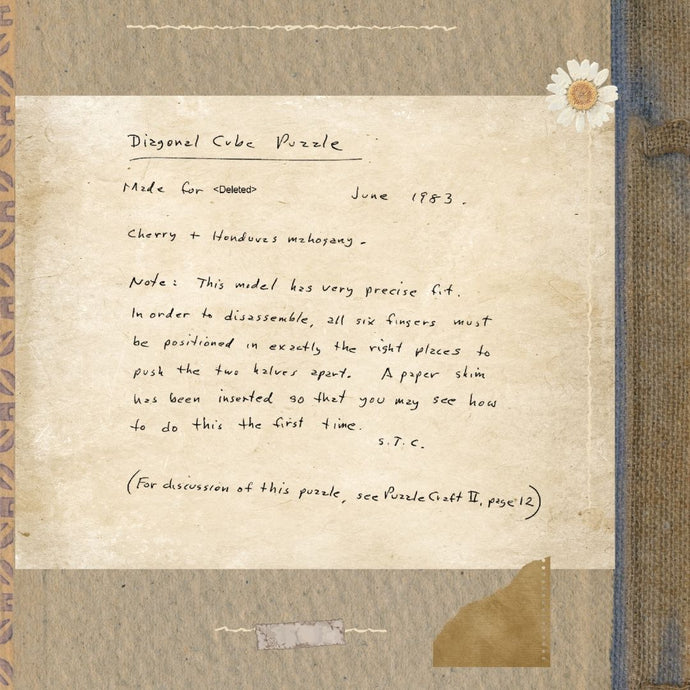 Diagonal Cube Puzzle
Made for <Deleted> June 1983.
Cherry + Honduras mahogany.
Note: This model has very precise fit.
In order to disassemble, all six fingers must
be positioned in exactly the right places to
push the two halves apart. A paper skim
has been inserted so that you may see how
to do this the first time.
S.T.C.
(For discussion of this puzzle, see Puzzle Craft II, page 12)